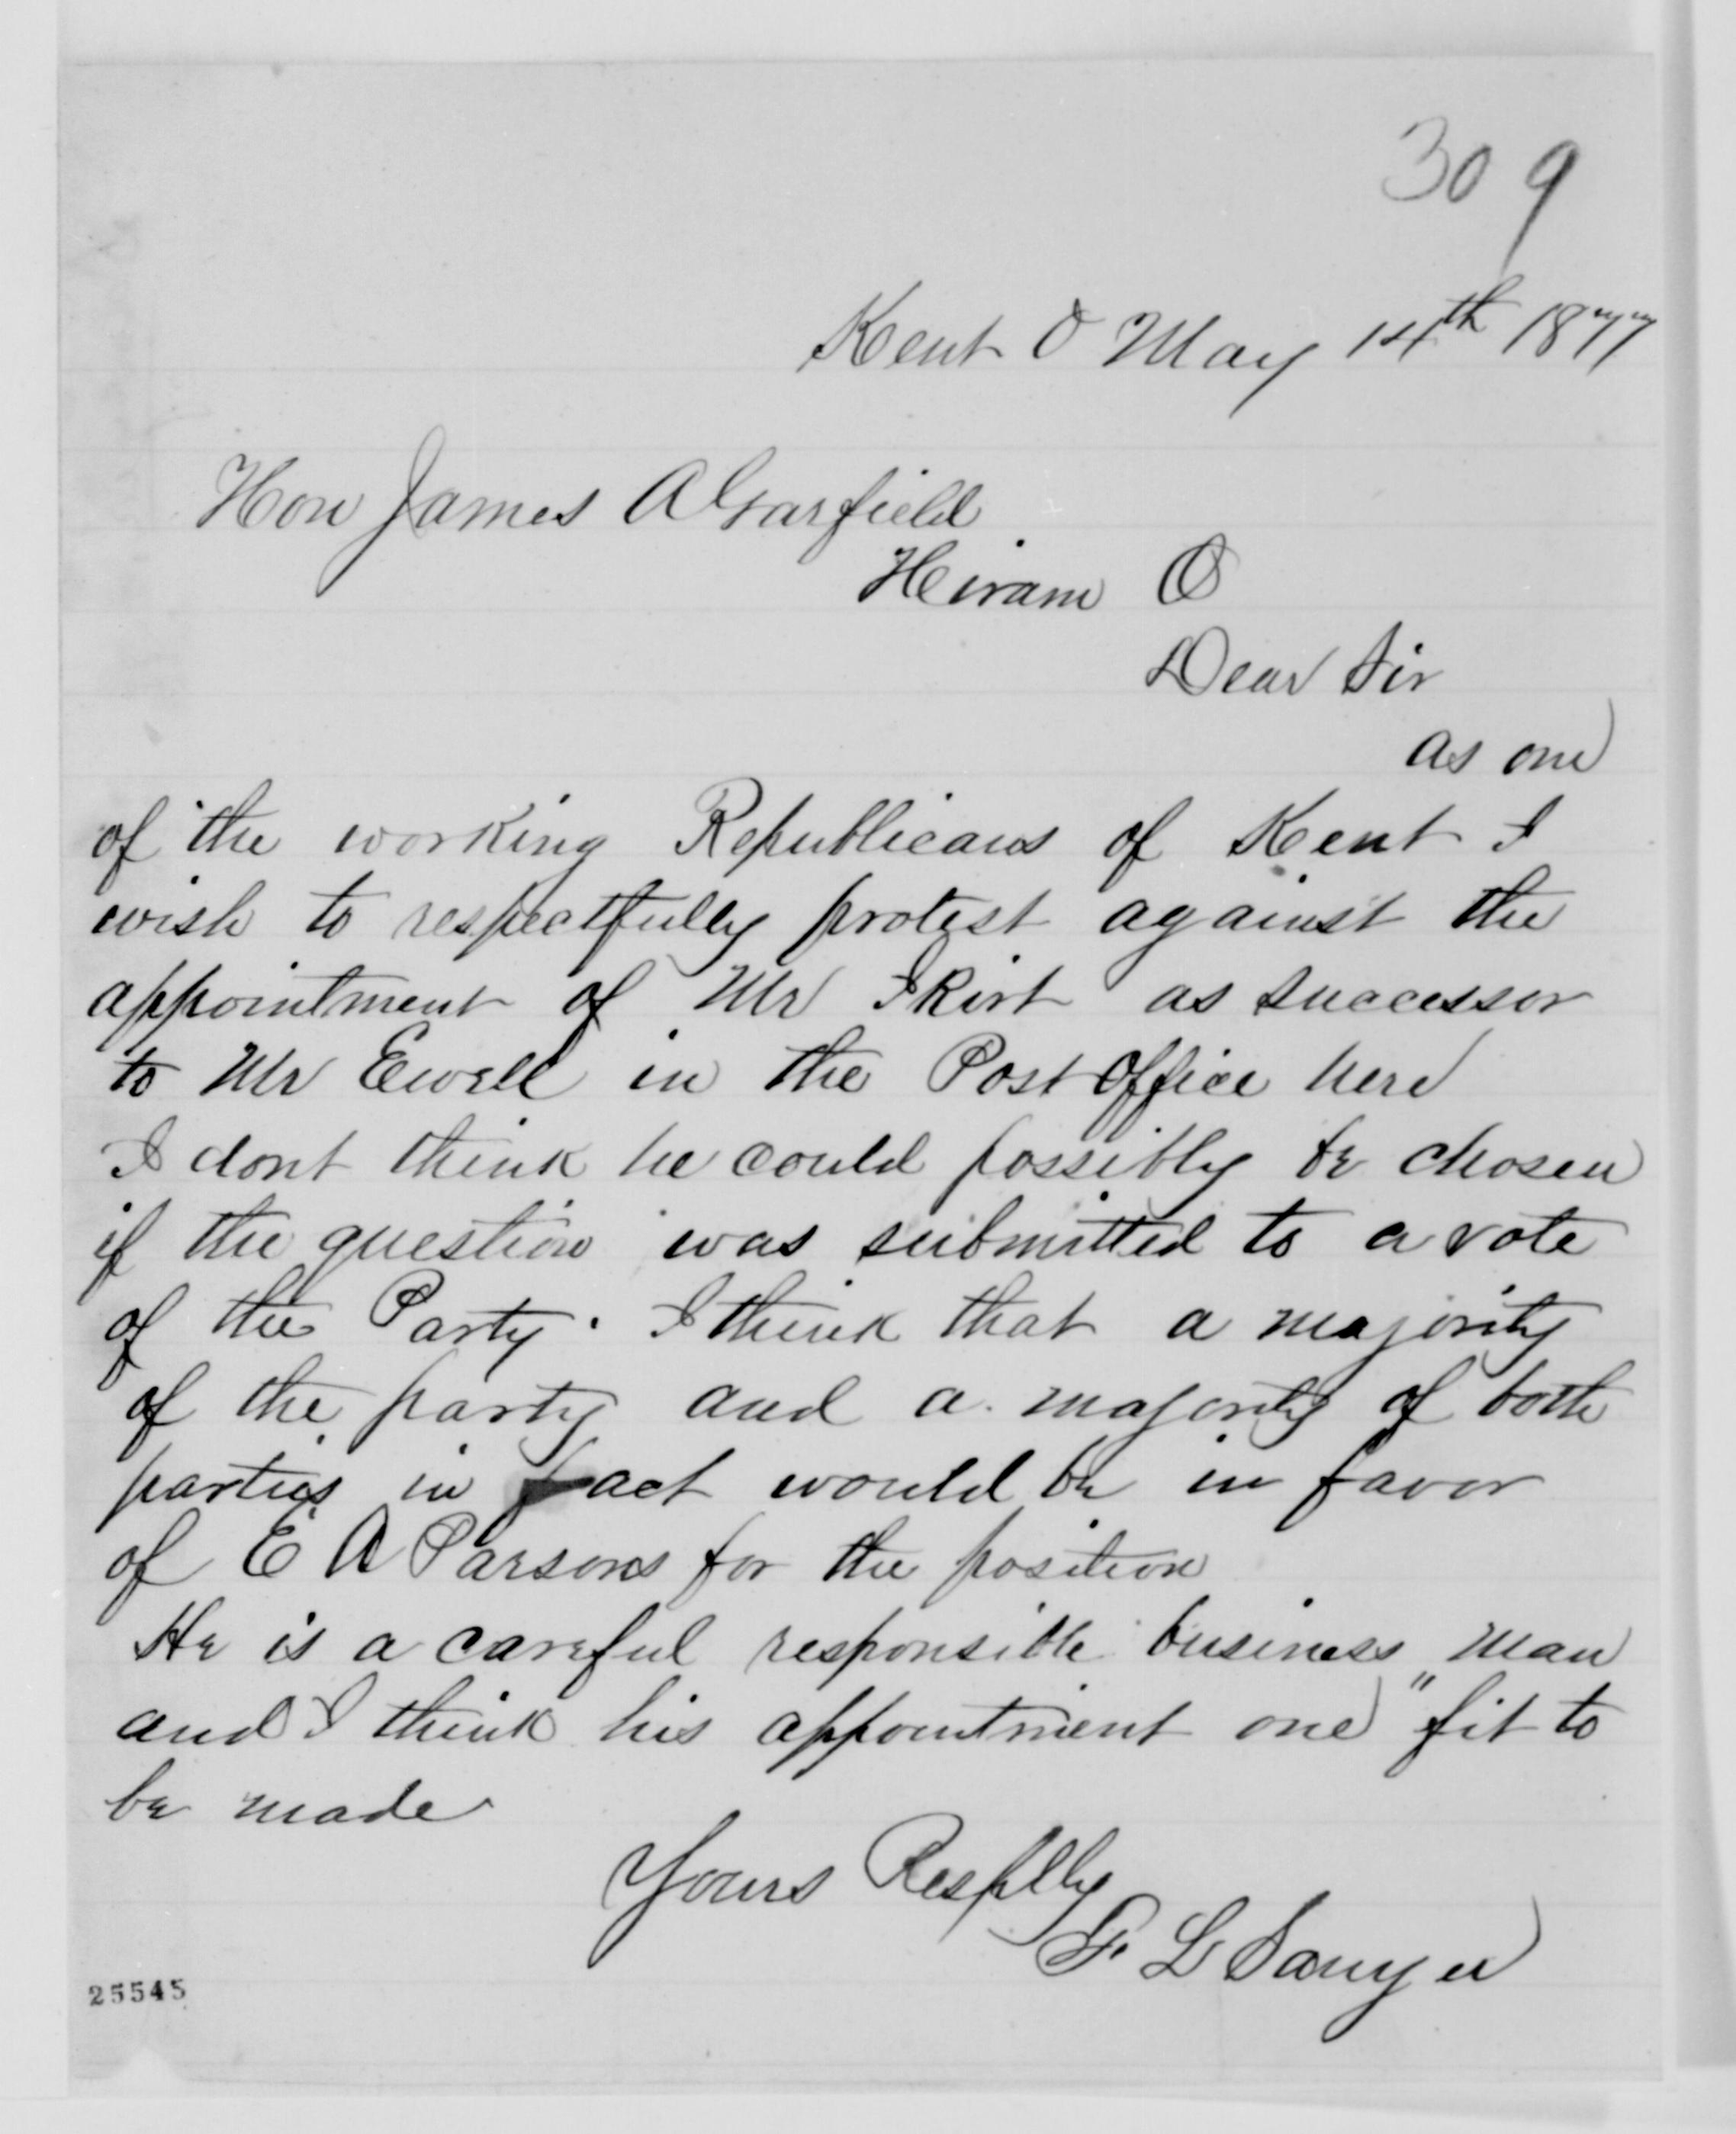 309
Kent O May 14th 1877
Hon James A Garfield
Hiram O
Dear Sir
as one
of the working Republicans of Kent I
wish to respectfully protest against the
appointment of Mr Skirt as successor
to Mr Ewell in the Post Office here
I dont think he could possibly be chosen
if the question was submitted to a vote
of the Party. I think that a majority
of the party and a majority of both
parties in fact would be in favor
of E A Parsons for the position
He is a careful responsible business man
and I think his appointment one "fit to
be made
Yours Respflly
F. L. Sawyer
25545